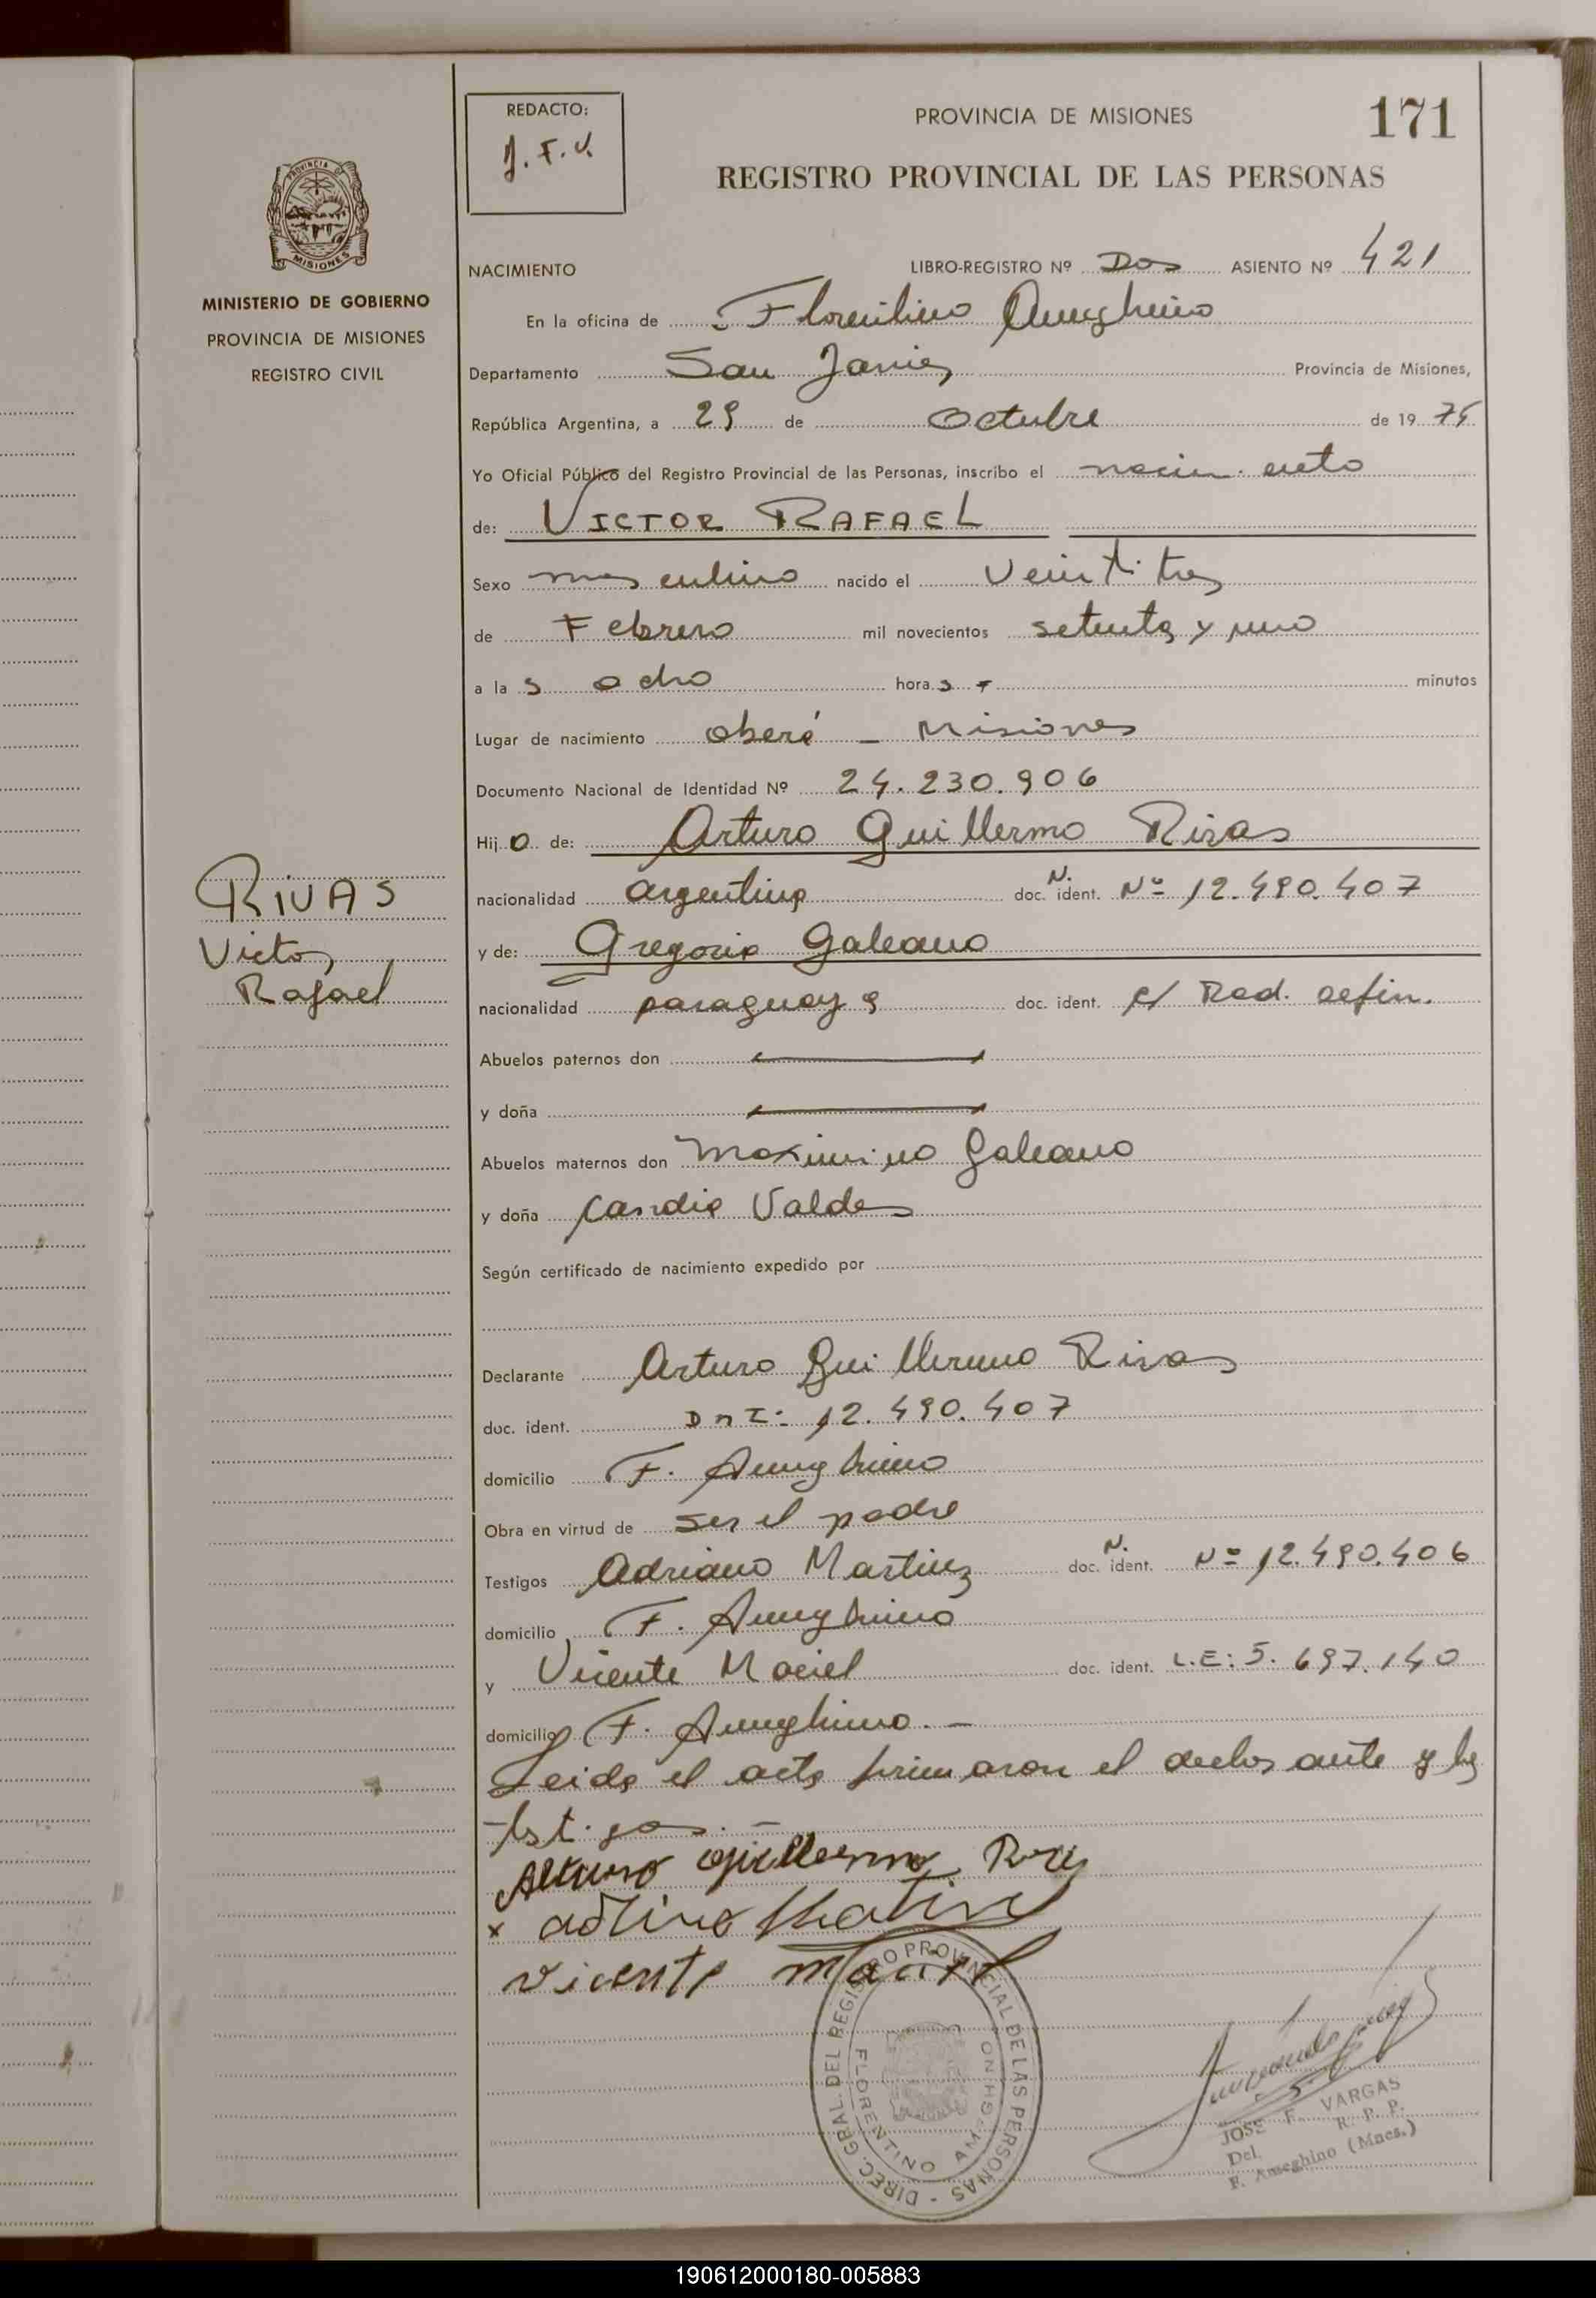 171
REDACTO:
J. F. V.
PROVINCIA DE MISIONES
REGISTRO PROVINCIAL DE LAS PERSONAS
MISIONES
MINISTERIO DE GOBIERNO
PROVINCIA DE MISIONES
REGISTRO CIVIL
NACIMIENTO LIBRO-REGISTRO Nº Dos ASIENTO Nº 421
En la oficina de Florentino Ameghino
Departamento San Javier Provincia de Misiones,
República Argentina, a 29 de Octubre de 19
Yo Oficial Público del Registro Provincial de las Personas, inscribo el nacimiento
de: VICTOR RAFAEL
Sexo masculino nacido el Veintitres
de Febrero mil novecientos setenta y uno
a las ocho horas minutos
Lugar de nacimiento Oberá - Misiones
Documento Nacional de Identidad Nº 24.230.906
Hijo de: Arturo Guillermo Rivas
nacionalidad argentina doc. N. ident. Nº 12.490.407
RIVAS
Victor
Rafael
y de: Gregoria Galeano
nacionalidad paraguaya doc. ident. c/ Rad. defin.
Abuelos paternos don
y doña
Abuelos maternos don Maximino Galeano
y doña Candia Valdes
Según certificado de nacimiento expedido por
Declarante Arturo Guillermo Rivas
doc. ident. DNI: 12.490.407
domicilio F. Ameghino
Obra en virtud de ser el padre
Testigos Adriano Martinez doc. N. ident. Nº 12.490.406
domicilio F. Ameghino
y Vicente Maciel doc. ident. L.E: 5.697.140
domicilio F. Ameghino. -
Leida el acta firmaron el declarante y los
testigos. -
Arturo Guillermo
x
vicente Maciel
DIREC. GRAL. DEL REGISTRO PROVINCIAL DE LAS PERSONAS -
FLORENTINO AMEGHINO
JOSE F. VARGAS
Del. R. P. P.
F. Ameghino (Mnes.)
190612000180-005883